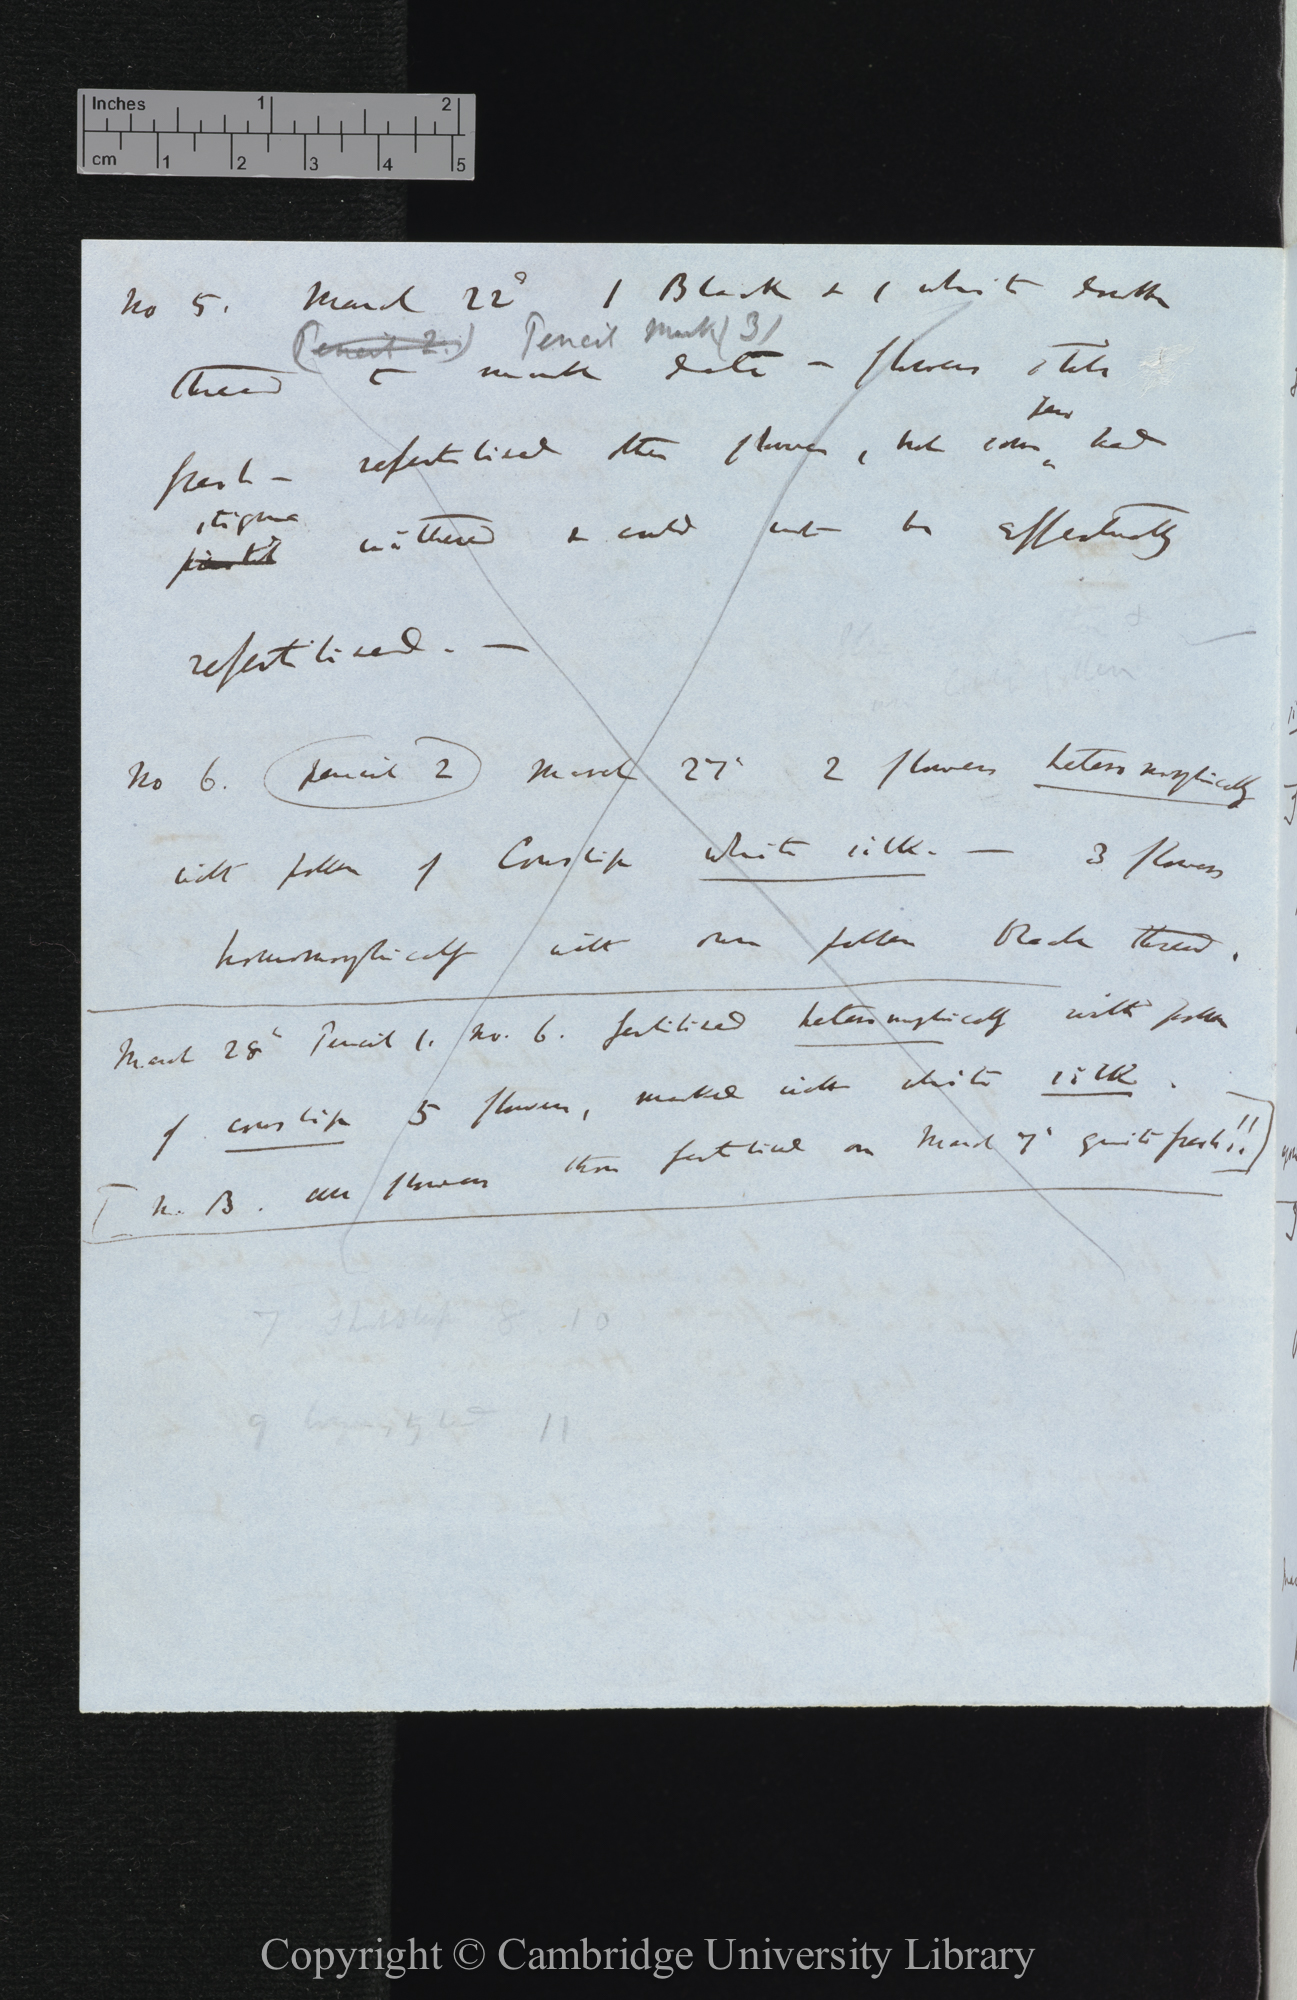 Inches 1 2
cm 1 2 3 4 5
No 5. March 22d 1 Black & 1 white double
(Pencil 2.) Pencil Mark (3)
thread to mark date — flowers still
fresh — refertilised the flowers, but some few had
stigma
pistil withered & could not be effectually
refertilised. —
No 6. (pencil 2) March 27th 2 flowers heteromorphically
with pollen of Cowslip white silk. — 3 flowers
homomorphically with own pollen black thread.
March 28th Pencil 1. No. 6. fertilised heteromorphically with pollen
of cowslip 5 flowers, marked with white silk.
[N.B. all flowers then fertilised on March 7th quite fresh!!]
7 8 10
9 11
Copyright © Cambridge University Library